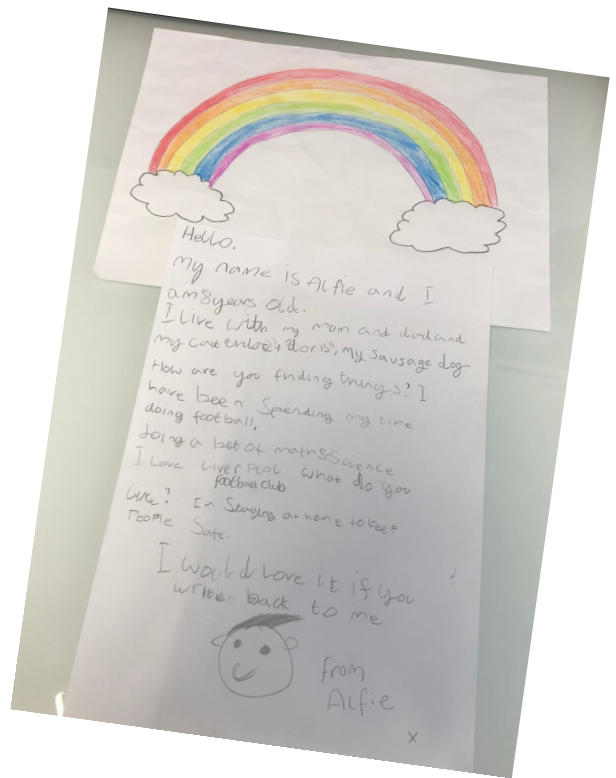 Hello.
My name is Alfie and I
am 8 years old.
I live with my mum and dad and
my cat chloe + doris, my sausage dog.
How are you finding things? I
have been spending my time
doing football,
doing a bit of maths & science
I love Liverpool what do you
football club
like? I'm staying at home to keep
people safe.
I would love it if you
write back to me
from
Alfie
x